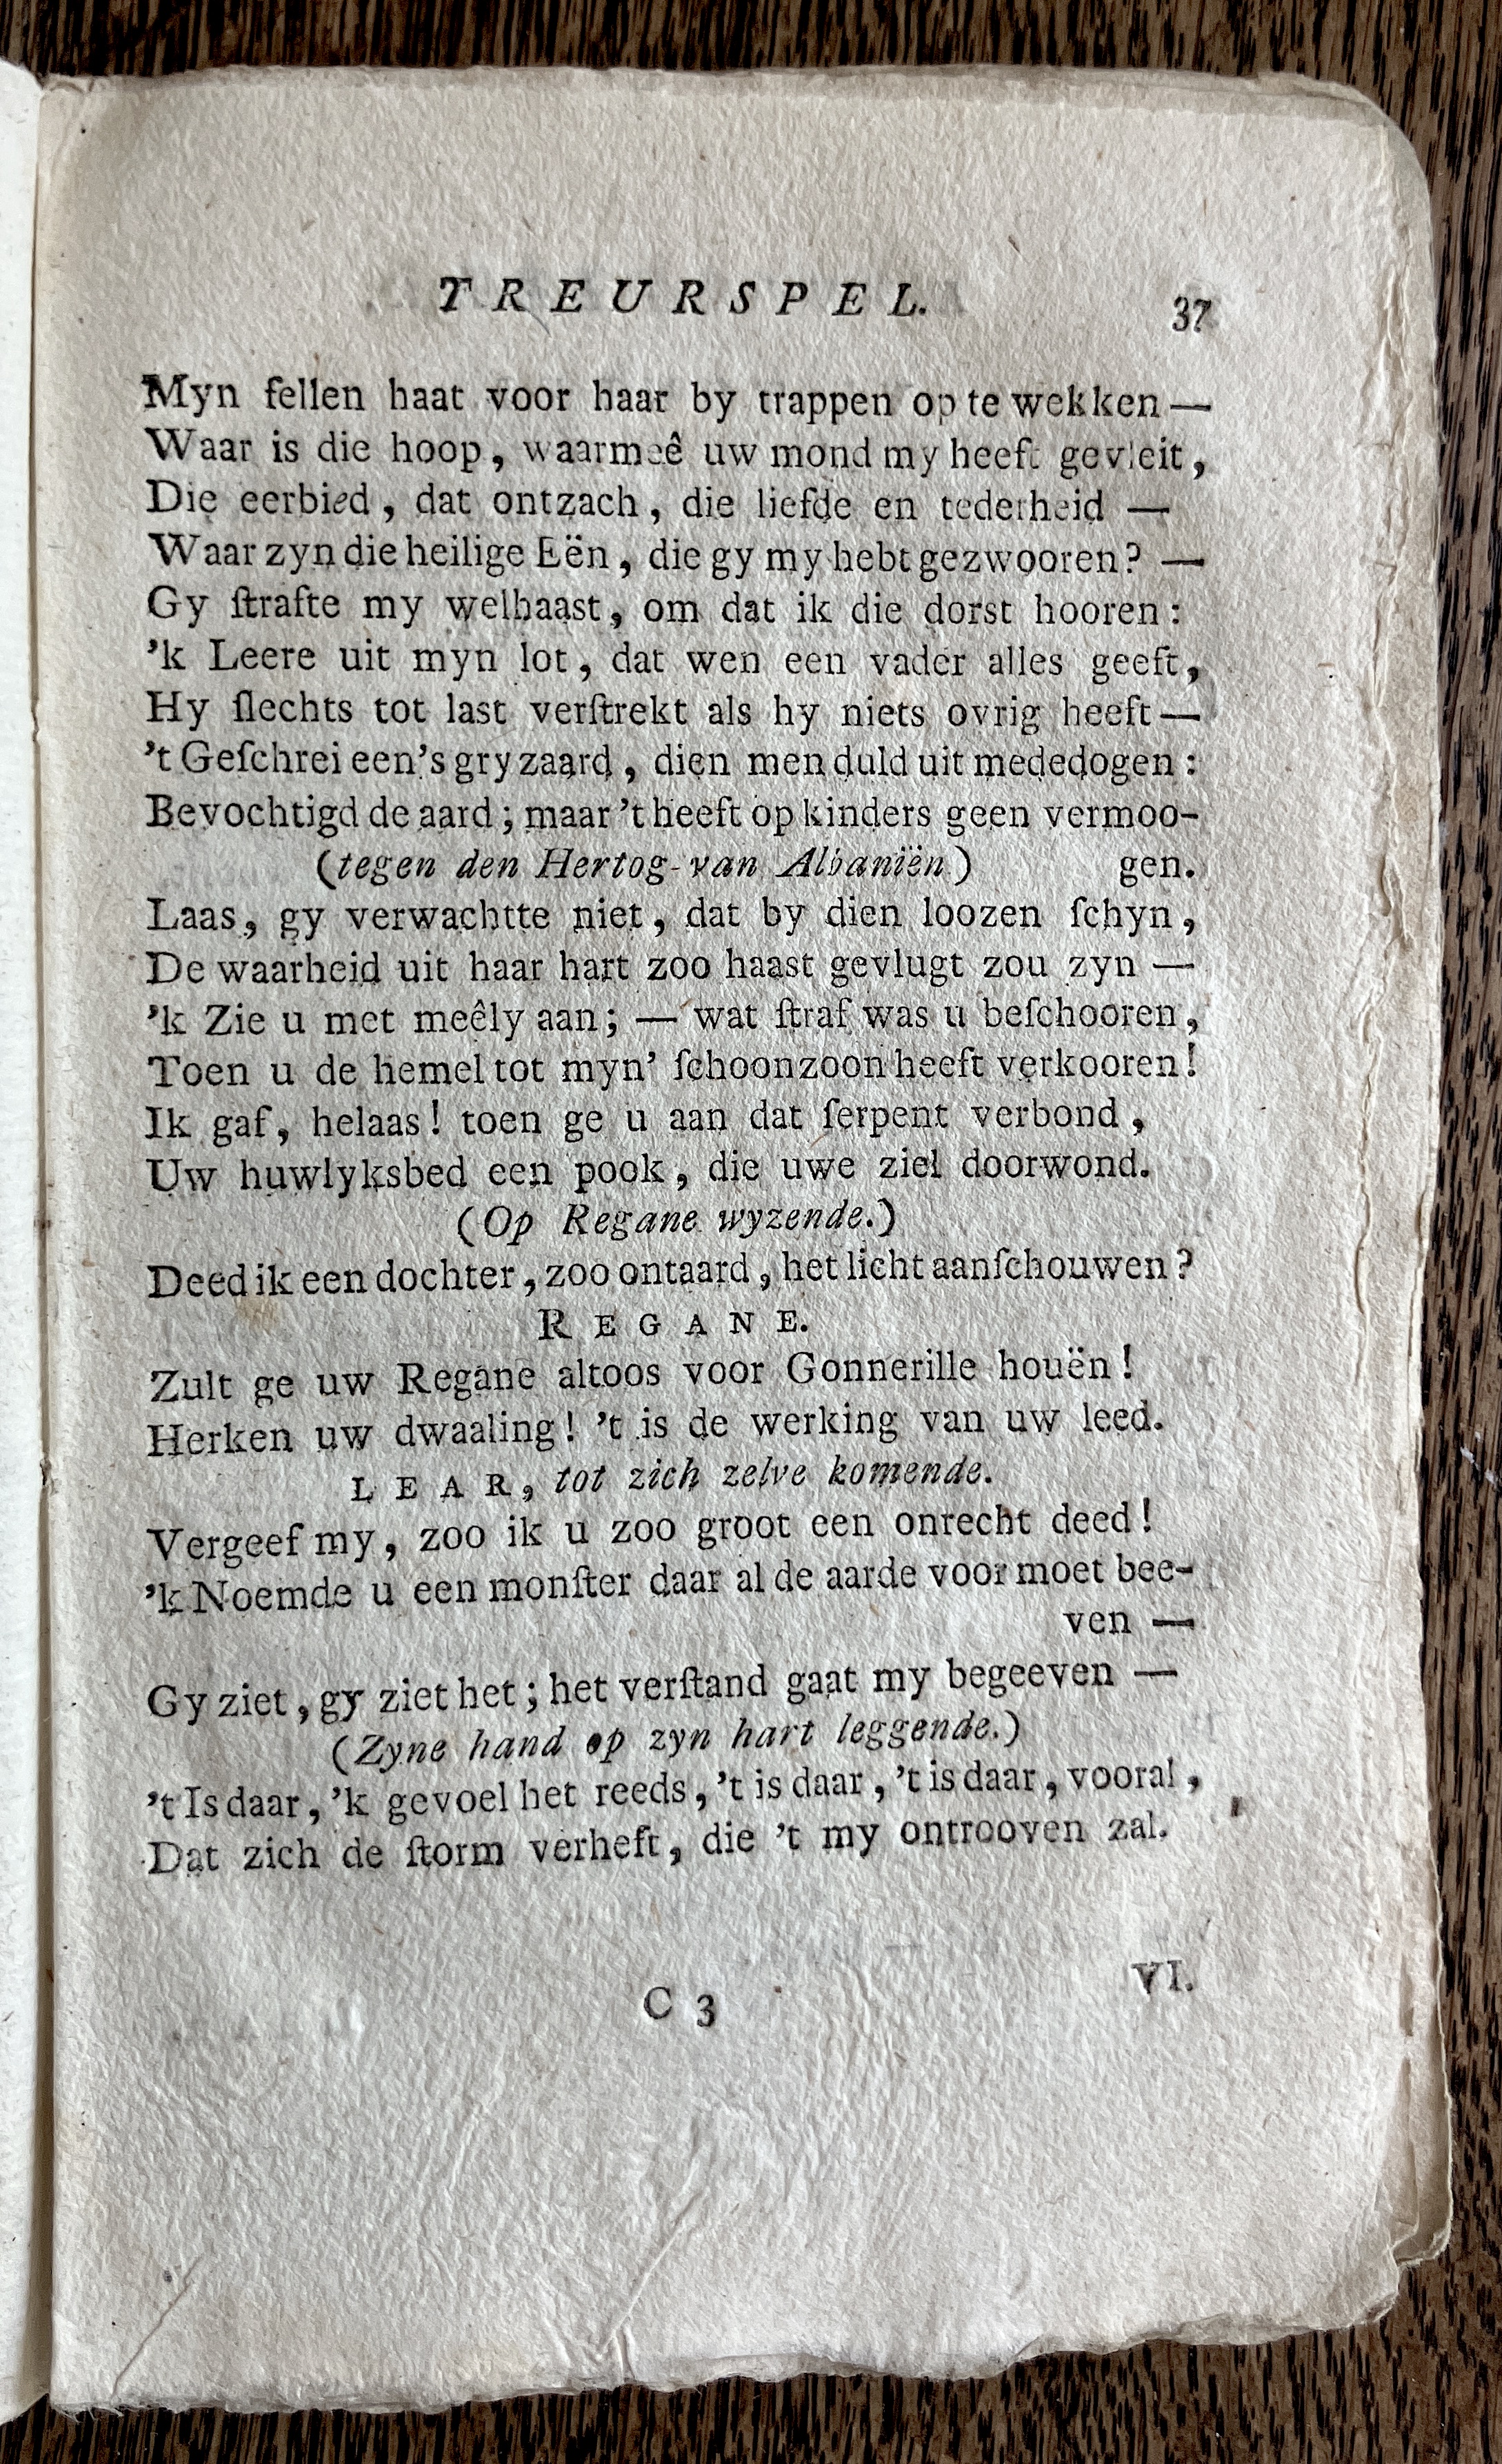 TREURSPEL. 37
Myn fellen haat voor haar by trappen op te wekken —
Waar is die hoop, waarmeê uw mond my heeft gevleit,
Die eerbied, dat ontzach, die liefde en tederheid —
Waar zyn die heilige Eën, die gy my hebt gezwooren? —
Gy ſtrafte my welhaast, om dat ik die dorst hooren:
'k Leere uit myn lot, dat wen een vader alles geeft,
Hy ſlechts tot last verſtrekt als hy niets ovrig heeft —
't Geſchrei een's gryzaard, dien men duld uit mededogen:
Bevochtigd de aard; maar 't heeft op kinders geen vermoo-
(tegen den Hertog van Albaniën) gen.
Laas, gy verwachtte niet, dat by dien loozen ſchyn,
De waarheid uit haar hart zoo haast gevlugt zou zyn —
'k Zie u met meêly aan; — wat ſtraf was u beſchooren,
Toen u de hemel tot myn' ſchoonzoon heeft verkooren!
Ik gaf, helaas! toen ge u aan dat ſerpent verbond,
Uw huwlyksbed een pook, die uwe ziel doorwond.
(Op Regane wyzende.)
Deed ik een dochter, zoo ontaard, het licht aanſchouwen?
REGANE.
Zult ge uw Regane altoos voor Gonnerille houën!
Herken uw dwaaling! 't is de werking van uw leed.
LEAR, tot zich zelve komende.
Vergeef my, zoo ik u zoo groot een onrecht deed!
'k Noemde u een monſter daar al de aarde voor moet bee-
ven —
Gy ziet, gy ziet het; het verſtand gaat my begeeven —
(Zyne hand op zyn hart leggende.)
't Is daar, 'k gevoel het reeds, 't is daar, 't is daar, vooral,
Dat zich de ſtorm verheft, die 't my ontrooven zal.
C 3 VI.